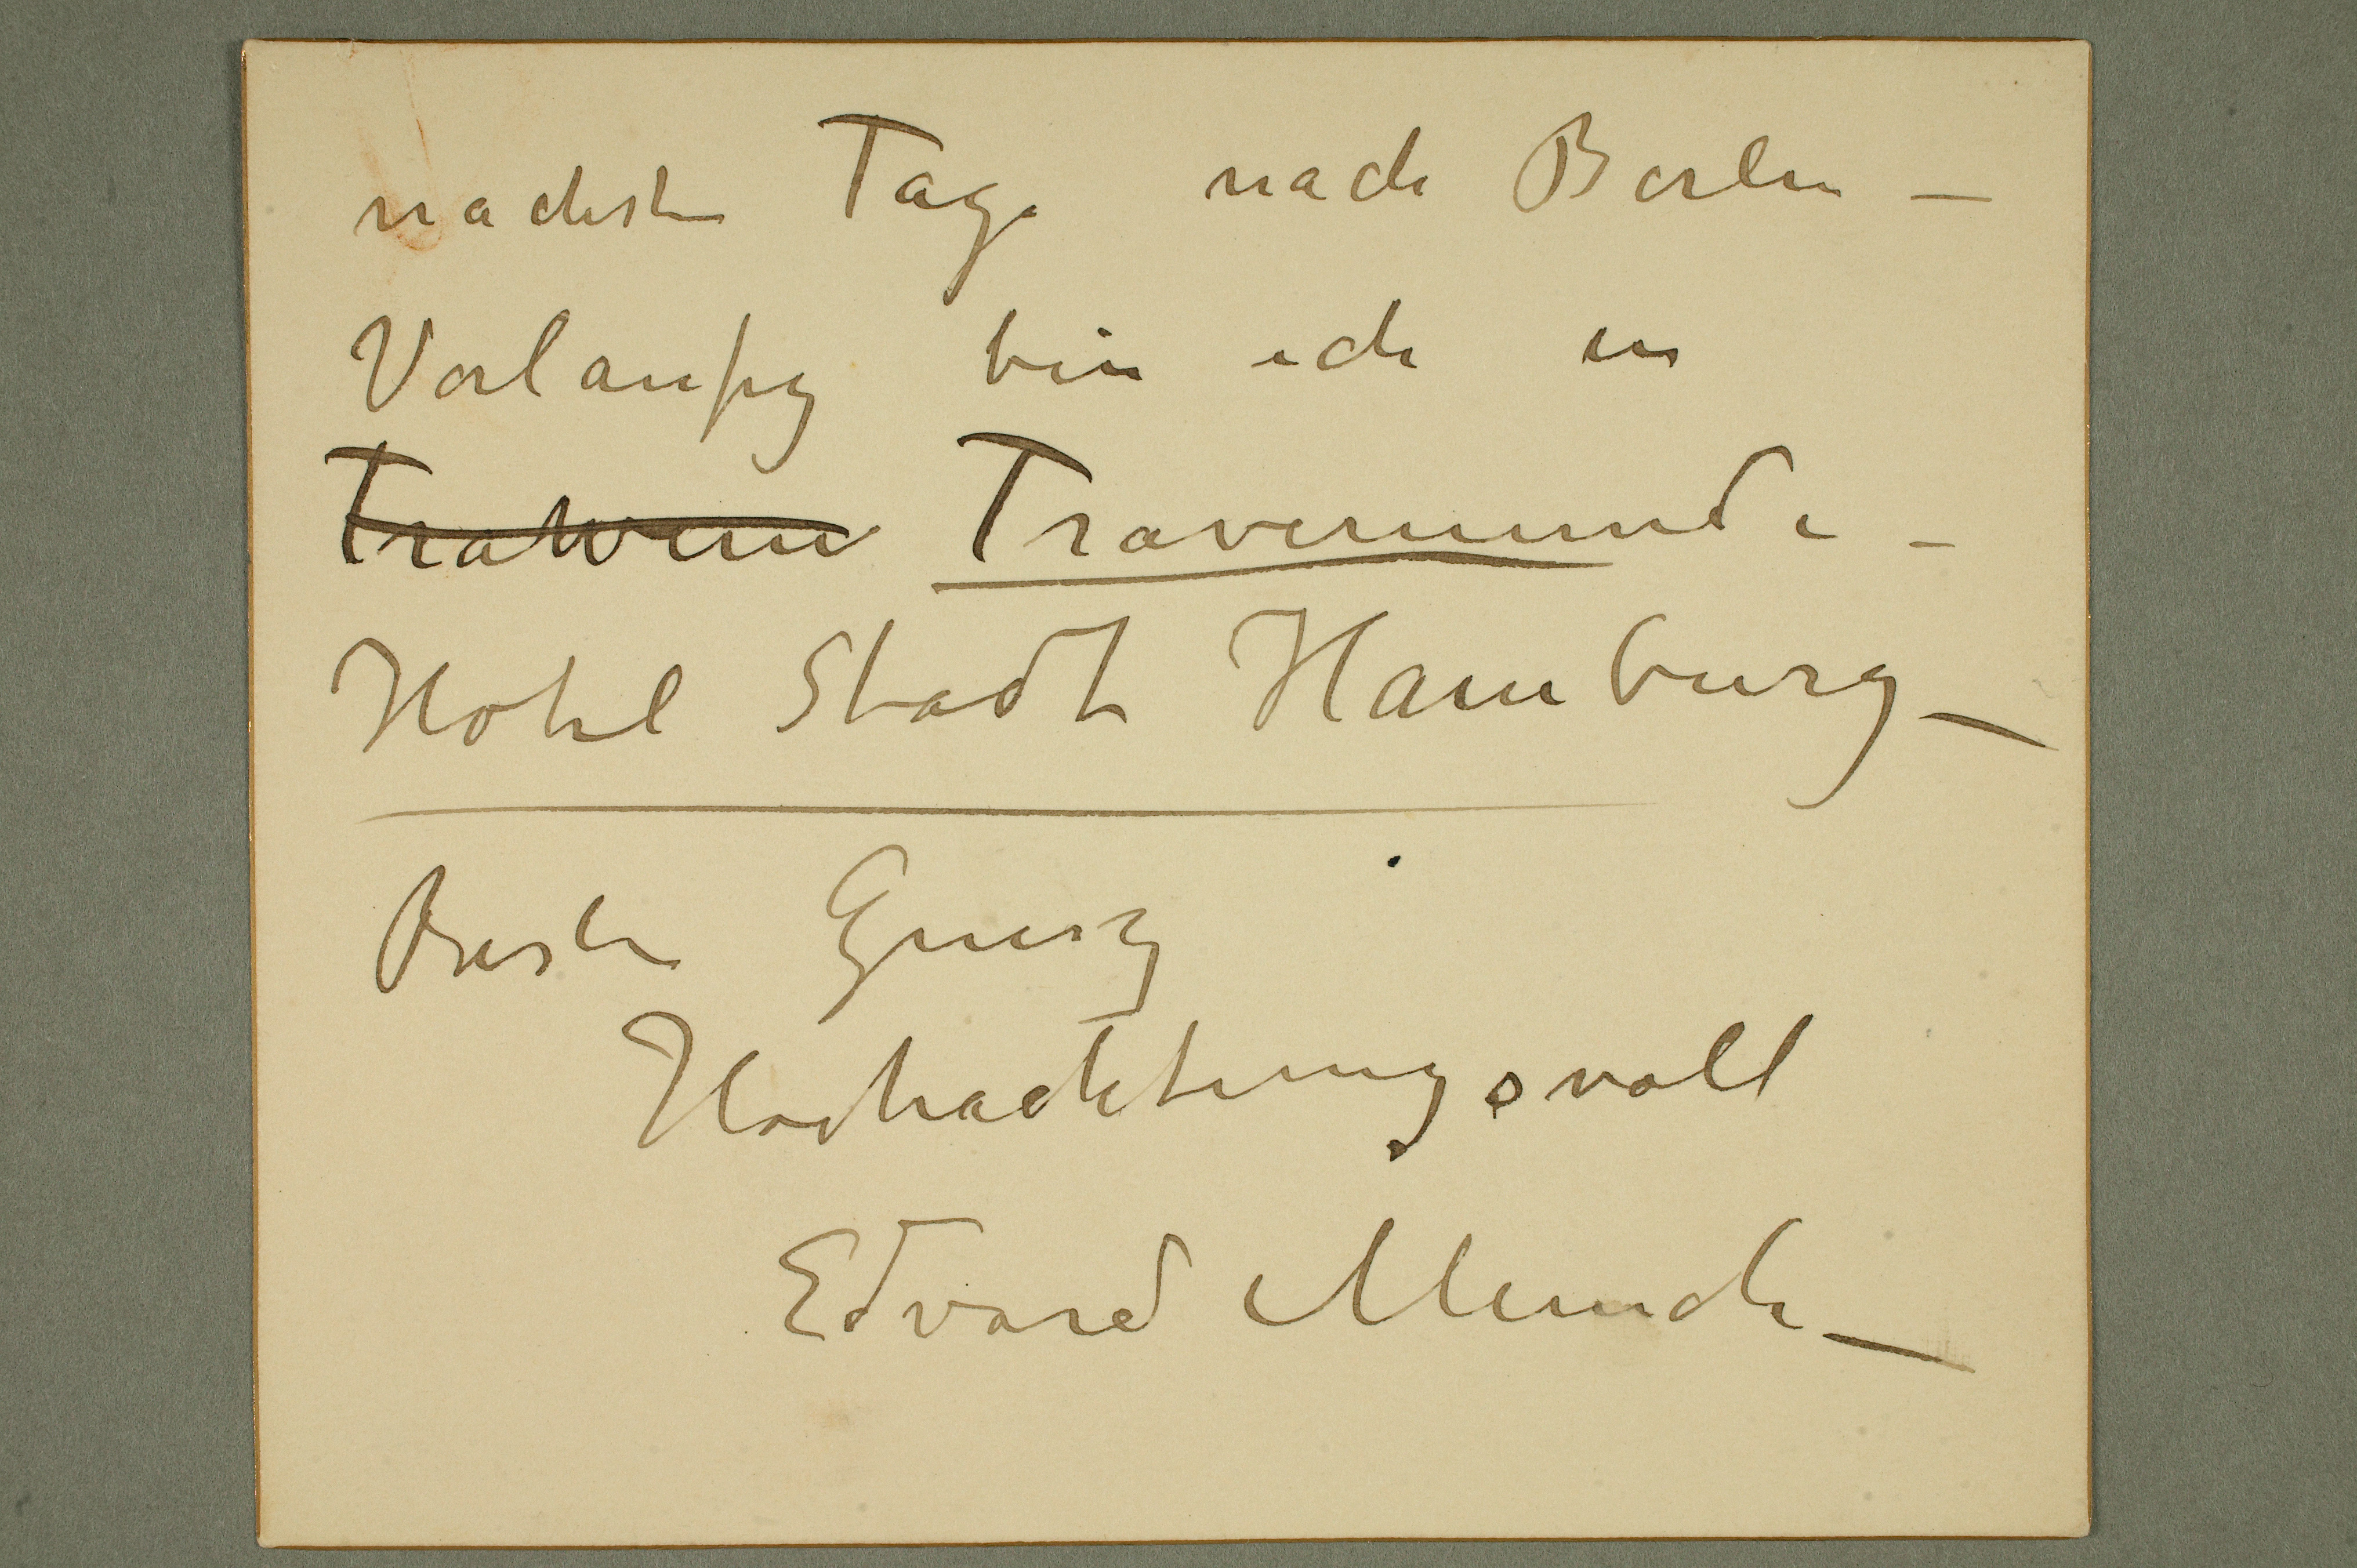 nachste Tage nach Berlin –
Vorlaufig bin ich in
~~Trawem~~ Travemunde –
Hotel Stadt Hamburg –
Beste Grusz
Hochachtungsvoll
Edvard Munch –